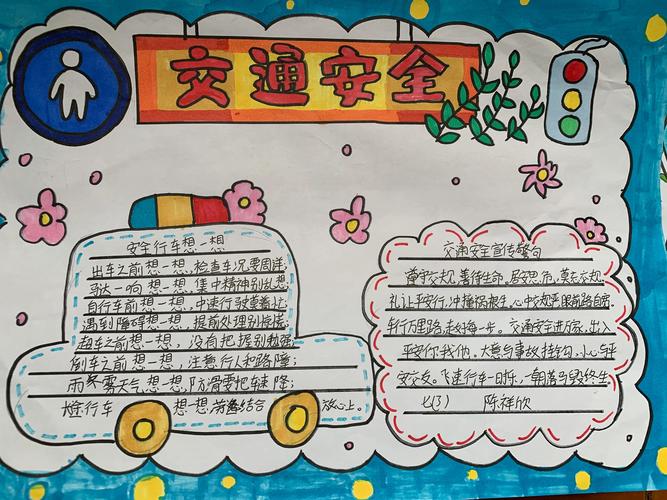 交通安全
安全行车想一想
出车之前想一想,检查车况要周详;
马达一响想一想,集中精神别乱想
自行车前想一想,中速行驶莫着忙
遇到障碍想一想,提前处理别慌张;
超车之前想一想,没有把握别勉强
倒车之前想一想,注意行人和路障;
雨冬雾天气想一想,防滑要把车速降;
长途行车 想一想,劳逸结合 放心上。
交通安全宣传警句
遵守交规,善待生命,居安思危,莫忘交规
礼让平安行,冲撞祸根生,心中交规严眼前路自宽
车行万里路,走好每一步。交通安全进万家,出入
平安你我他。大意与事故挂钩,小心与平
安交友。飞速行车一时快,一朝落马毁终生
七(3) 陈祥欣